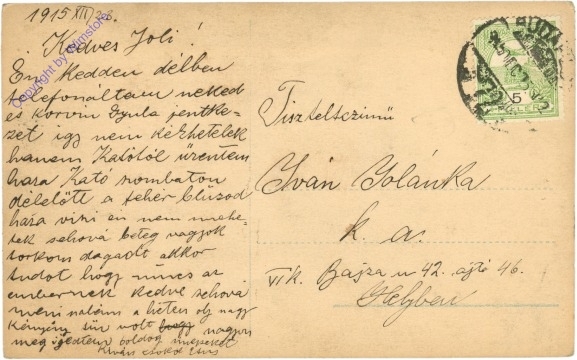 1915 XII
Kedves Joli!
Én kedden délben
telefonáltam neked
és Korvin Gyula jentke=
zet igy nem kérhetelek
hanem Katótól üzentem
haza Kató szombaton
délelőtt a fehér blúzod
haza viszi én nem mehe=
tek sehová beteg vagyok
torkom dagadt akkor
tudod hogy nincs az
embernek kedve sehová
meni nálam a héten oly nagy
volt nagyon
meg boldog
Kíván csokol
Copyright by
Tiszteltcimü
Iván Jolánka
k. a.
VI k. Bajza u 42. ajtó 46.
Helyben
BUDAPEST
5